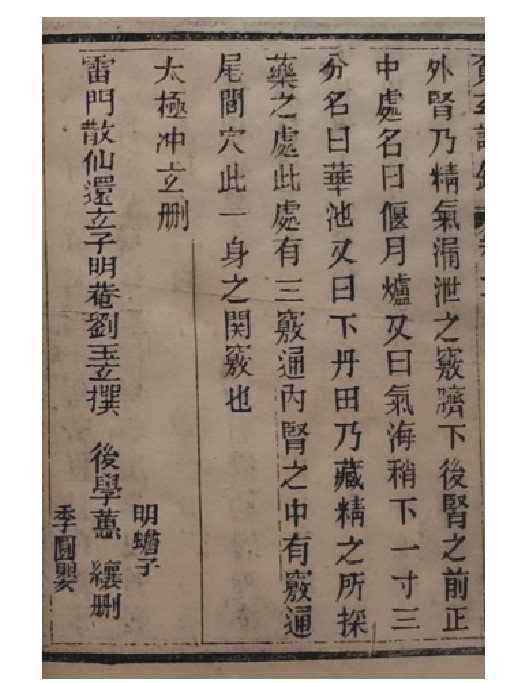 外腎乃精氣漏泄之竅臍下後腎之前正
中處名曰偃月爐又曰氣海稍下一寸三
分名曰華池又曰下丹田乃藏精之所採
藥之處此處有三竅通內腎之中有竅通
尾閭穴此一身之関竅也
太極冲玄删
雷門散仙還玄子明菴劉玉玄撰
後學蕙纕删
明蟾子
季圓嬰